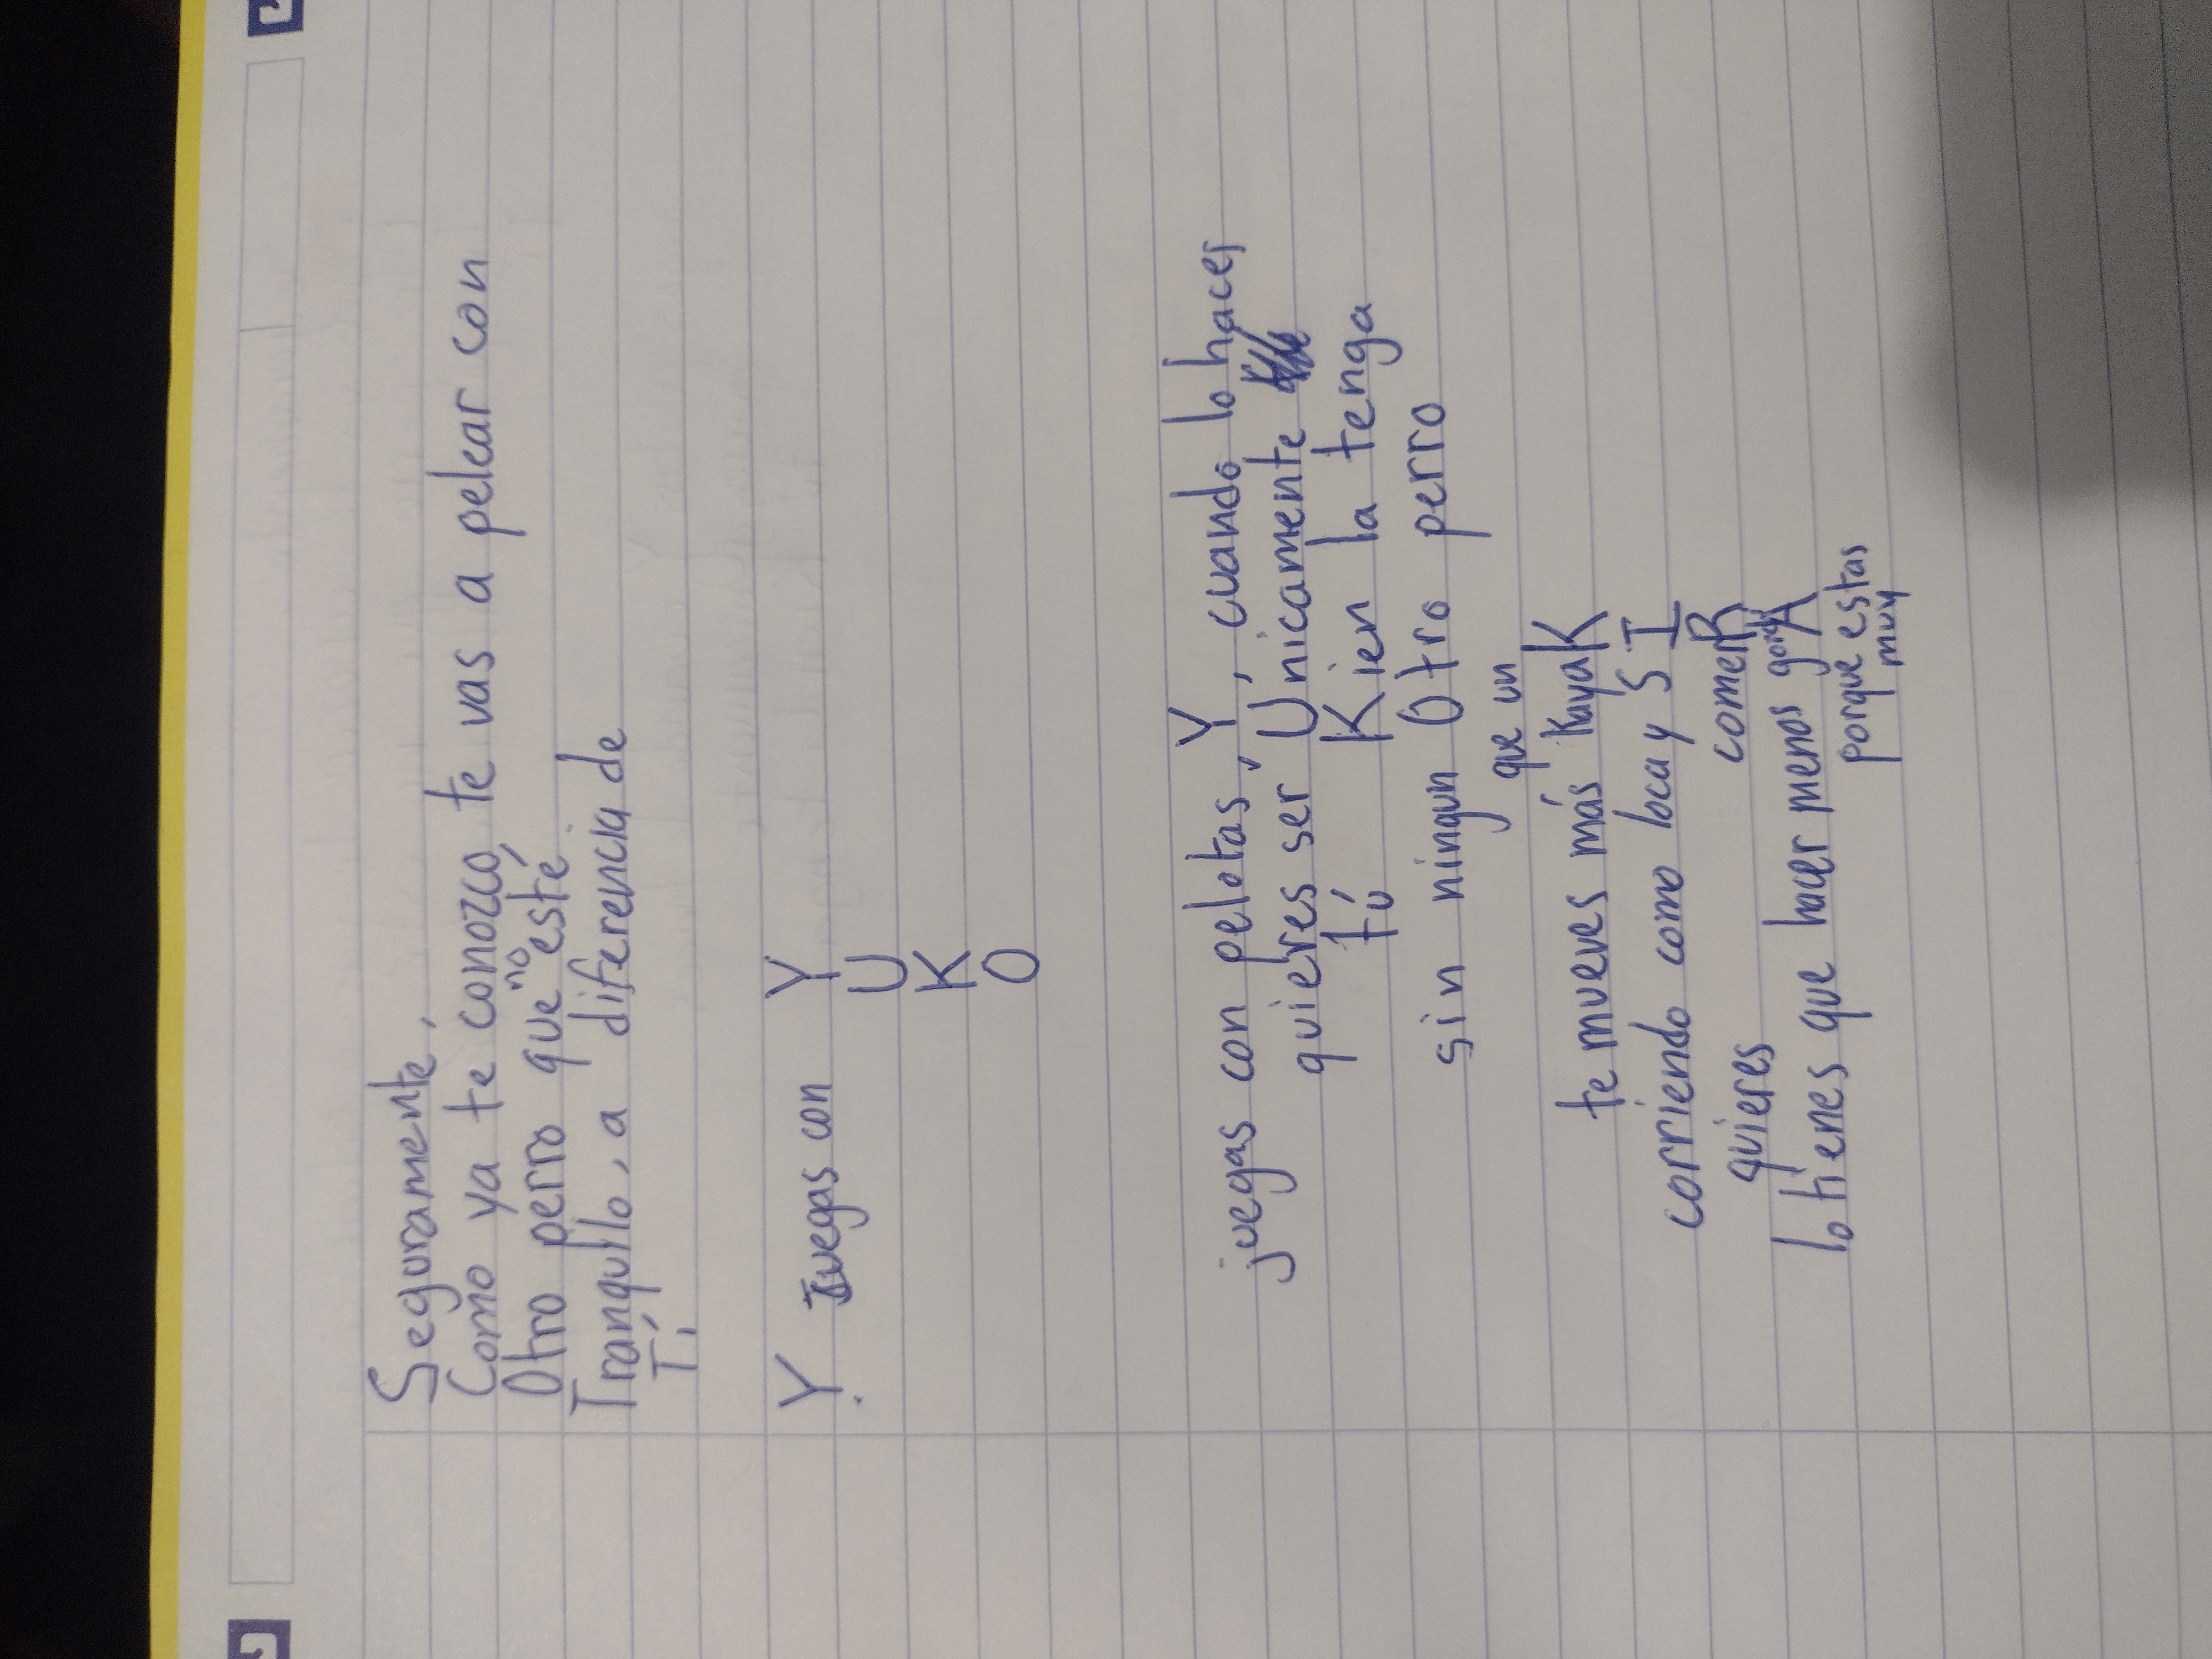 Seguramente,
Como ya te conozco, te vas a pelear con
Otro perro que no esté
Tranquilo, a diferencia de
Tí
Y juegas con Y
U
K
O
juegas con pelotas, Y, cuando lo haces
quieres ser Unicamente
tú Kien la tenga
sin ningun Otro perro
que un
te mueves más kayaK
corriendo como loca y SI
quieres comeR
lo tienes que hacer menos gordA
porque estas
muy